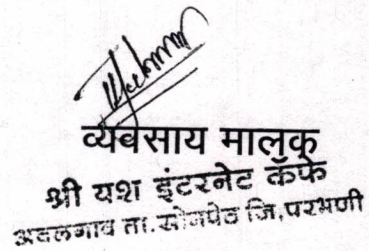 व्यवसाय मालक
श्री यश इंटरनेट कॅफे
ता.सोनपेठ जि,परभणी